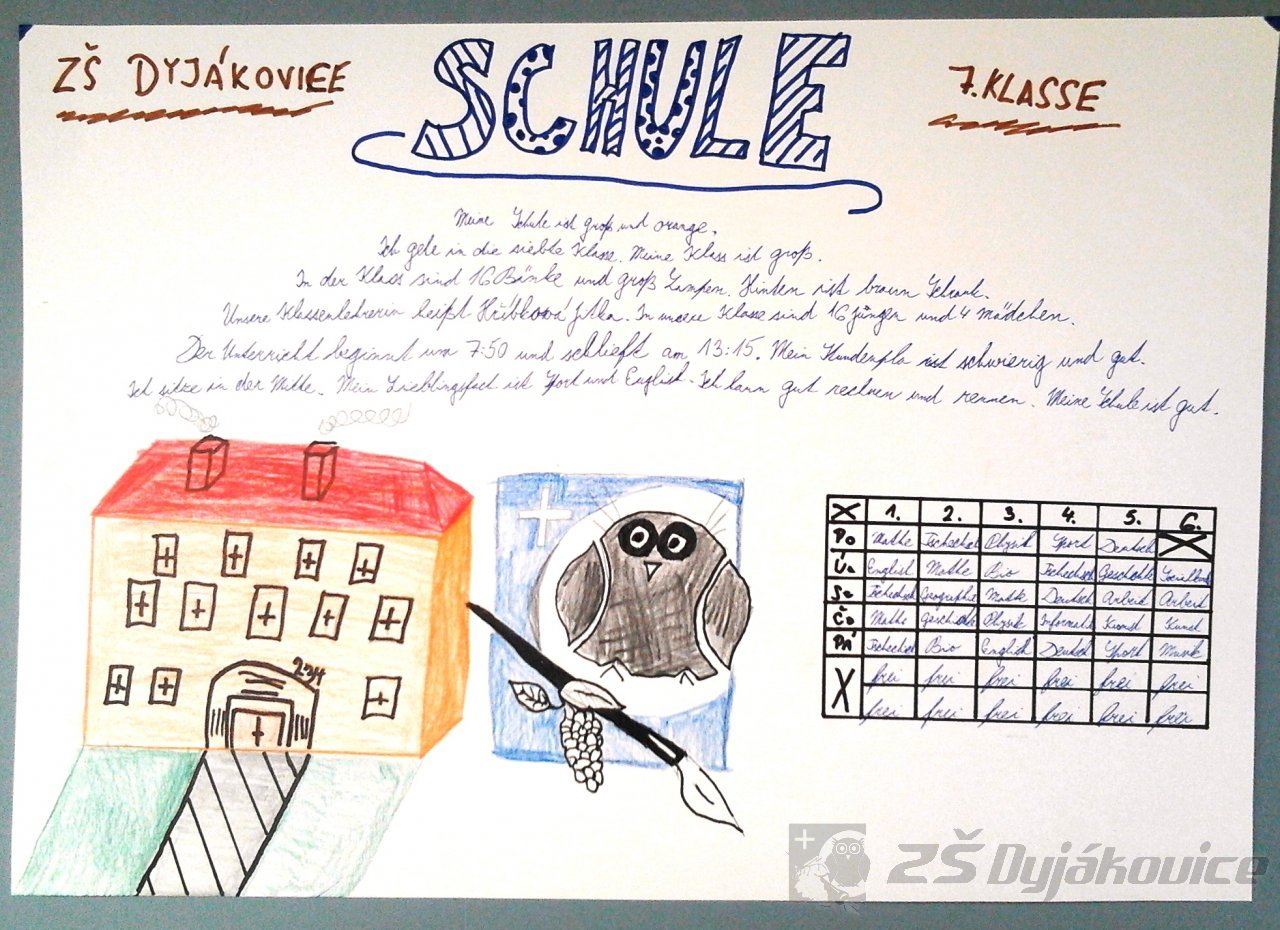 ZŠ DYJÁKOVICE
SCHULE
7. KLASSE
Meine Schule ist groß und orange.
Ich gehe in die siebte Klasse. Meine Klass ist groß.
In der Klass sind 16 Bänke und groß Lampen. Hinten ist braun Schrank.
Unsere Klassenlehrerin heißt Hříbková Jitka. In unsere Klasse sind 16 Jungen und 4 Mädchen.
Der Unterricht beginnt um 7:50 und schließt am 13:15. Mein Stundenpla ist schwierig und gut.
Ich sitze in der Mitte. Mein Lieblingsfach ist Sport und English. Ich kann gut rechnen und rennen. Meine Schule ist gut.
254
X 1. 2. 3. 4. 5. 6.
Po Mathe Tschechisch Physik Sport Deutsch X
Út English Mathe Bio Tschechisch Geschichte
St Tschechisch Geographie Mathe Deutsch Arbeit Arbeit
Čt Mathe Geschichte Physik Informatik Kunst Kunst
Pá Tschechisch Bio English Deutsch Sport Musik
X frei frei frei frei frei frei
frei frei frei frei frei frei
ZŠ Dyjákovice